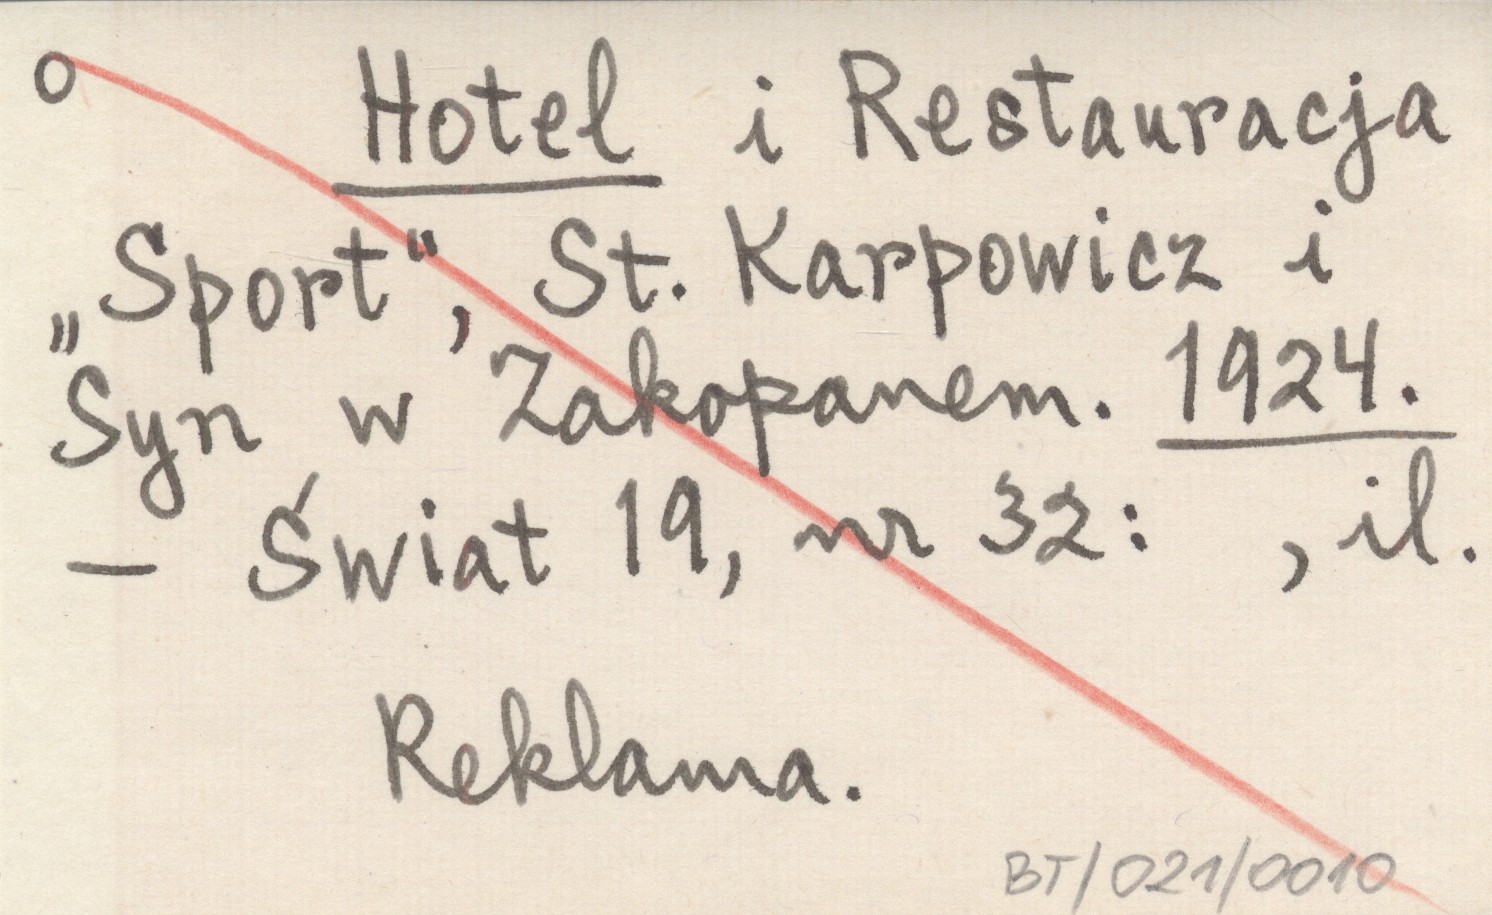 o Hotel i Restauracja
„Sport“, St. Karpowicz i
Syn w Zakopanem. 1924.
— Świat 19, nr 32: , il.
Reklama.
BT/021/0010